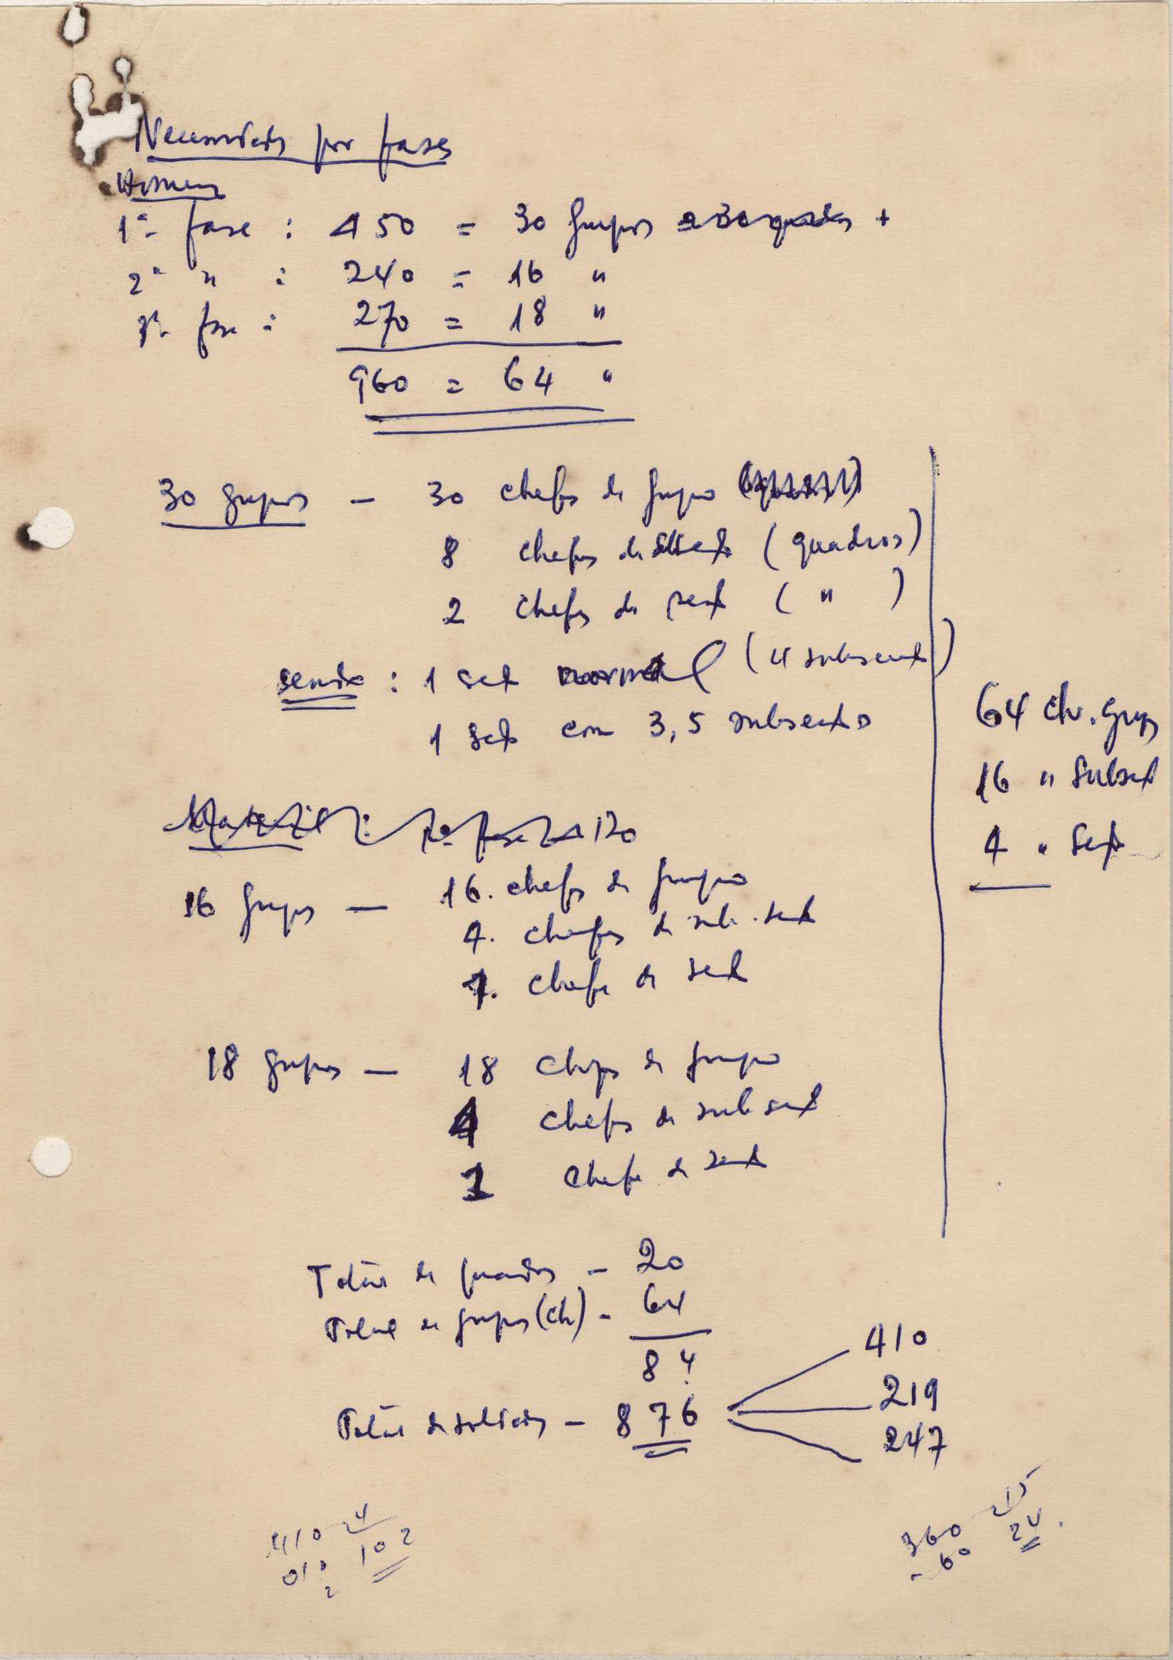 Necessidades por fases
Homens
1ª fase : 450 = 30 grupos +
2ª " : 240 = 16 "
3ª fase : 270 = 18 "
960 = 64 "
30 grupos — 30 chefes de grupo
8 chefes de subsect (quadros)
2 chefes de sect ( " )
sendo : 1 sect normal (4 subsect)
1 sect com 3,5 subsectos
64 ch. grup
16 " subsect
4 " sect
Material : 1ª fase 120
16 grupos — 16. chefes de grupo
4. chefes de sub. sect
1. chefe de sect
18 grupos — 18 chefes de grupo
4 chefes de sub sect
1 chefe de sect
Total de quadros — 20
Total de grupos (ch) - 64
84
Total de soldados — 876
410
219
247
410 4
010 102
2
360 15
-60 24